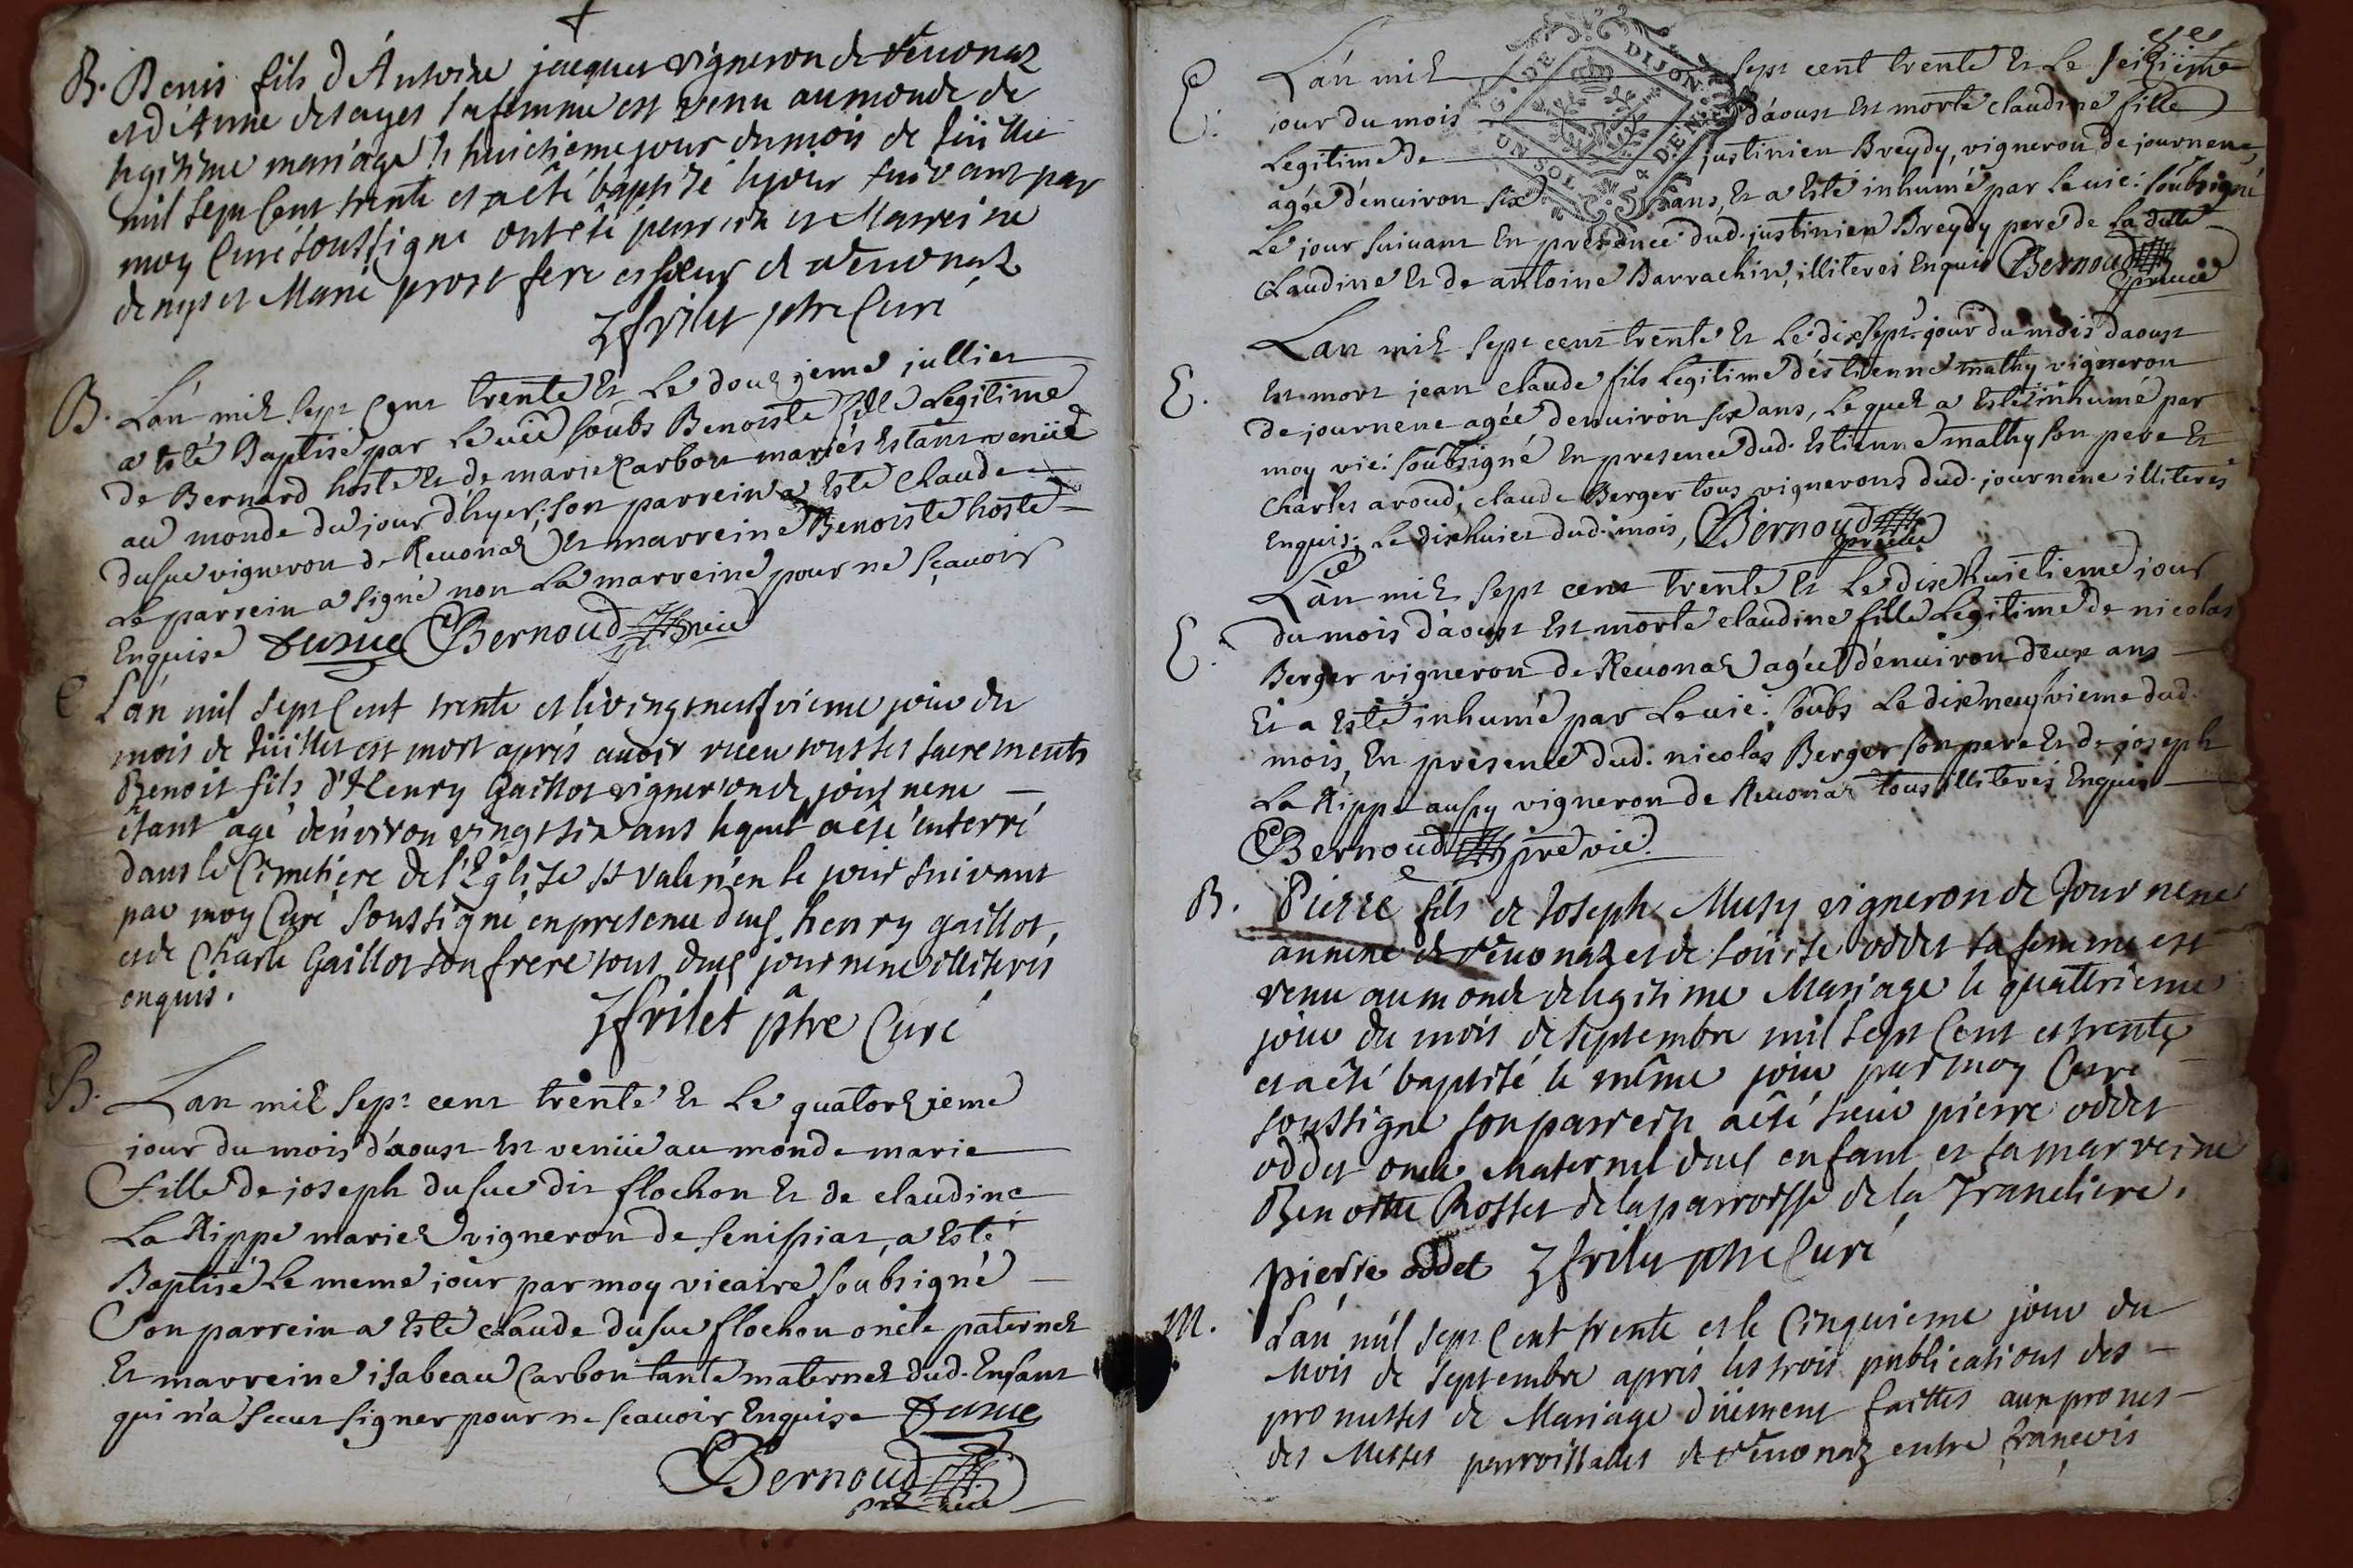 B. Benis fils d'Antoine jacquet vigneron de Revonaz
et d'Anne desayes sa femme est venu au monde de
legitime mariage le huictieme jour du mois de Juillet
mil sept Cent trente et a êté baptizé le jour suivant par
moy Curé soussigné ont êté parrein et Marreine
denys et Marie prost frere et sœur de Revonaz
frilet ptre Curé
B. L'an mil sept Cent trente Et Le douzieme jullier
a Esté Baptisé par Le vic soubs Benoiste fille Legitime
de Bernard hoste Et de marie Carbon mariés Estant venüe
au monde du jour d'hyer, son parrein a Esté Claude
dusuc vigneron de Revonaz Et marreine Benoiste hoste
Le parrein a signé non La marreine pour ne sçavoir
Enquise Dusuc Bernoud vic
E L'an mil sept Cent trente et le vingtneufvieme jour du
mois de Juillet est mort aprés avoir receu tous ses sacrements
Benoit fils d'Henry Gaillot vigneron de journene
étant agé d'environ vingt six ans lequel a êté enterré
dans le Cimetiere de l'Eglise st valerien le jour suivant
par moy Curé soussigné en presence dud henry gaillot,
et de Charle Gaillot son frere tous dud journene illiterés
enquis.
frilet ptre Curé
B. L'an mil sept cent trente Et Le quatorzieme
jour du mois d'aoust Est venüe au monde marie
fille de joseph dusuc dit flochon Et de claudine
La Rippe mariez vigneron de senissiat, a Esté
Baptisé Le meme jour par moy vicaire soubsigné
Son parrein a Esté claude dusuc flochon oncle paternel
Et marreine isabeau Carbon tante maternel dud. Enfant
qui n'a sceut signer pour ne scavoir Enquise Dusuc
Bernoud
pre vic
E. L'an mil sept cent trente Et Le seizieme
jour du mois d'aoust Est morte claudine fille
Legitime de justinien Breydy, vigneron de journene,
agée d'enuiron six ans, Et a Esté inhumé par Le vic: soubsigné
Le jour suivant En presence dud. justinien Breydy pere de La ditte
Claudine Et de antoine Barrachin, illiteres Enquis Bernoud
pre vic
G. DE DIJON
UN SOL 4 DEN.
L'an mil sept cent trente Et Le dixsept. jour du mois daoust
E. Est mort jean claude fils Legitime d'éstienne mathy vigneron
de journene agée denuiron six ans, Lequel a Esté inhumé par
moy vic: soubsigné En presence dud. Estienne mathy son pere Et
Charles aroud, claude Berger tous vignerons dud. journene illiterés
Enquis, Le dixhuict dud. mois, Bernoud
pre vic
L'an mil sept cent trente Et Le dixhuictieme jour
E. du mois d'aoust Est morte claudine fille Legitime de nicolas
Berger vigneron de Revonaz agée d'enuiron deux ans
Et a Esté inhumé par Le vic: soubs Le dixneufvieme dud.
mois, En presence dud. nicolas Berger son pere Et de joseph
La Rippe aussy vigneron de Revonaz tous illiteres Enquis
Bernoud pre vic:
B. Pierre fils de Joseph Musy vigneron de Journene
annexe de Revonaz et de Loüise oddet sa femme est
venu au monde de legitime Mariage le quattrieme
jour du mois de septembre mil sept Cent et trente
et a êté baptizé le même jour par moy Curé
soussigné son parrein a êté sieur pierre oddet
oddet oncle Maternel dud enfant et sa marreine
Benoitte Rosset de la parroisse de la Trancliere.
pierre oddet frilet ptre Curé
M. L'an mil sept Cent trente et le Cinquieme jour du
Mois de septembre aprés les trois publications des
promesses de Mariage düement faittes aux prones
des Messes parroissiales de Revonaz entre françois